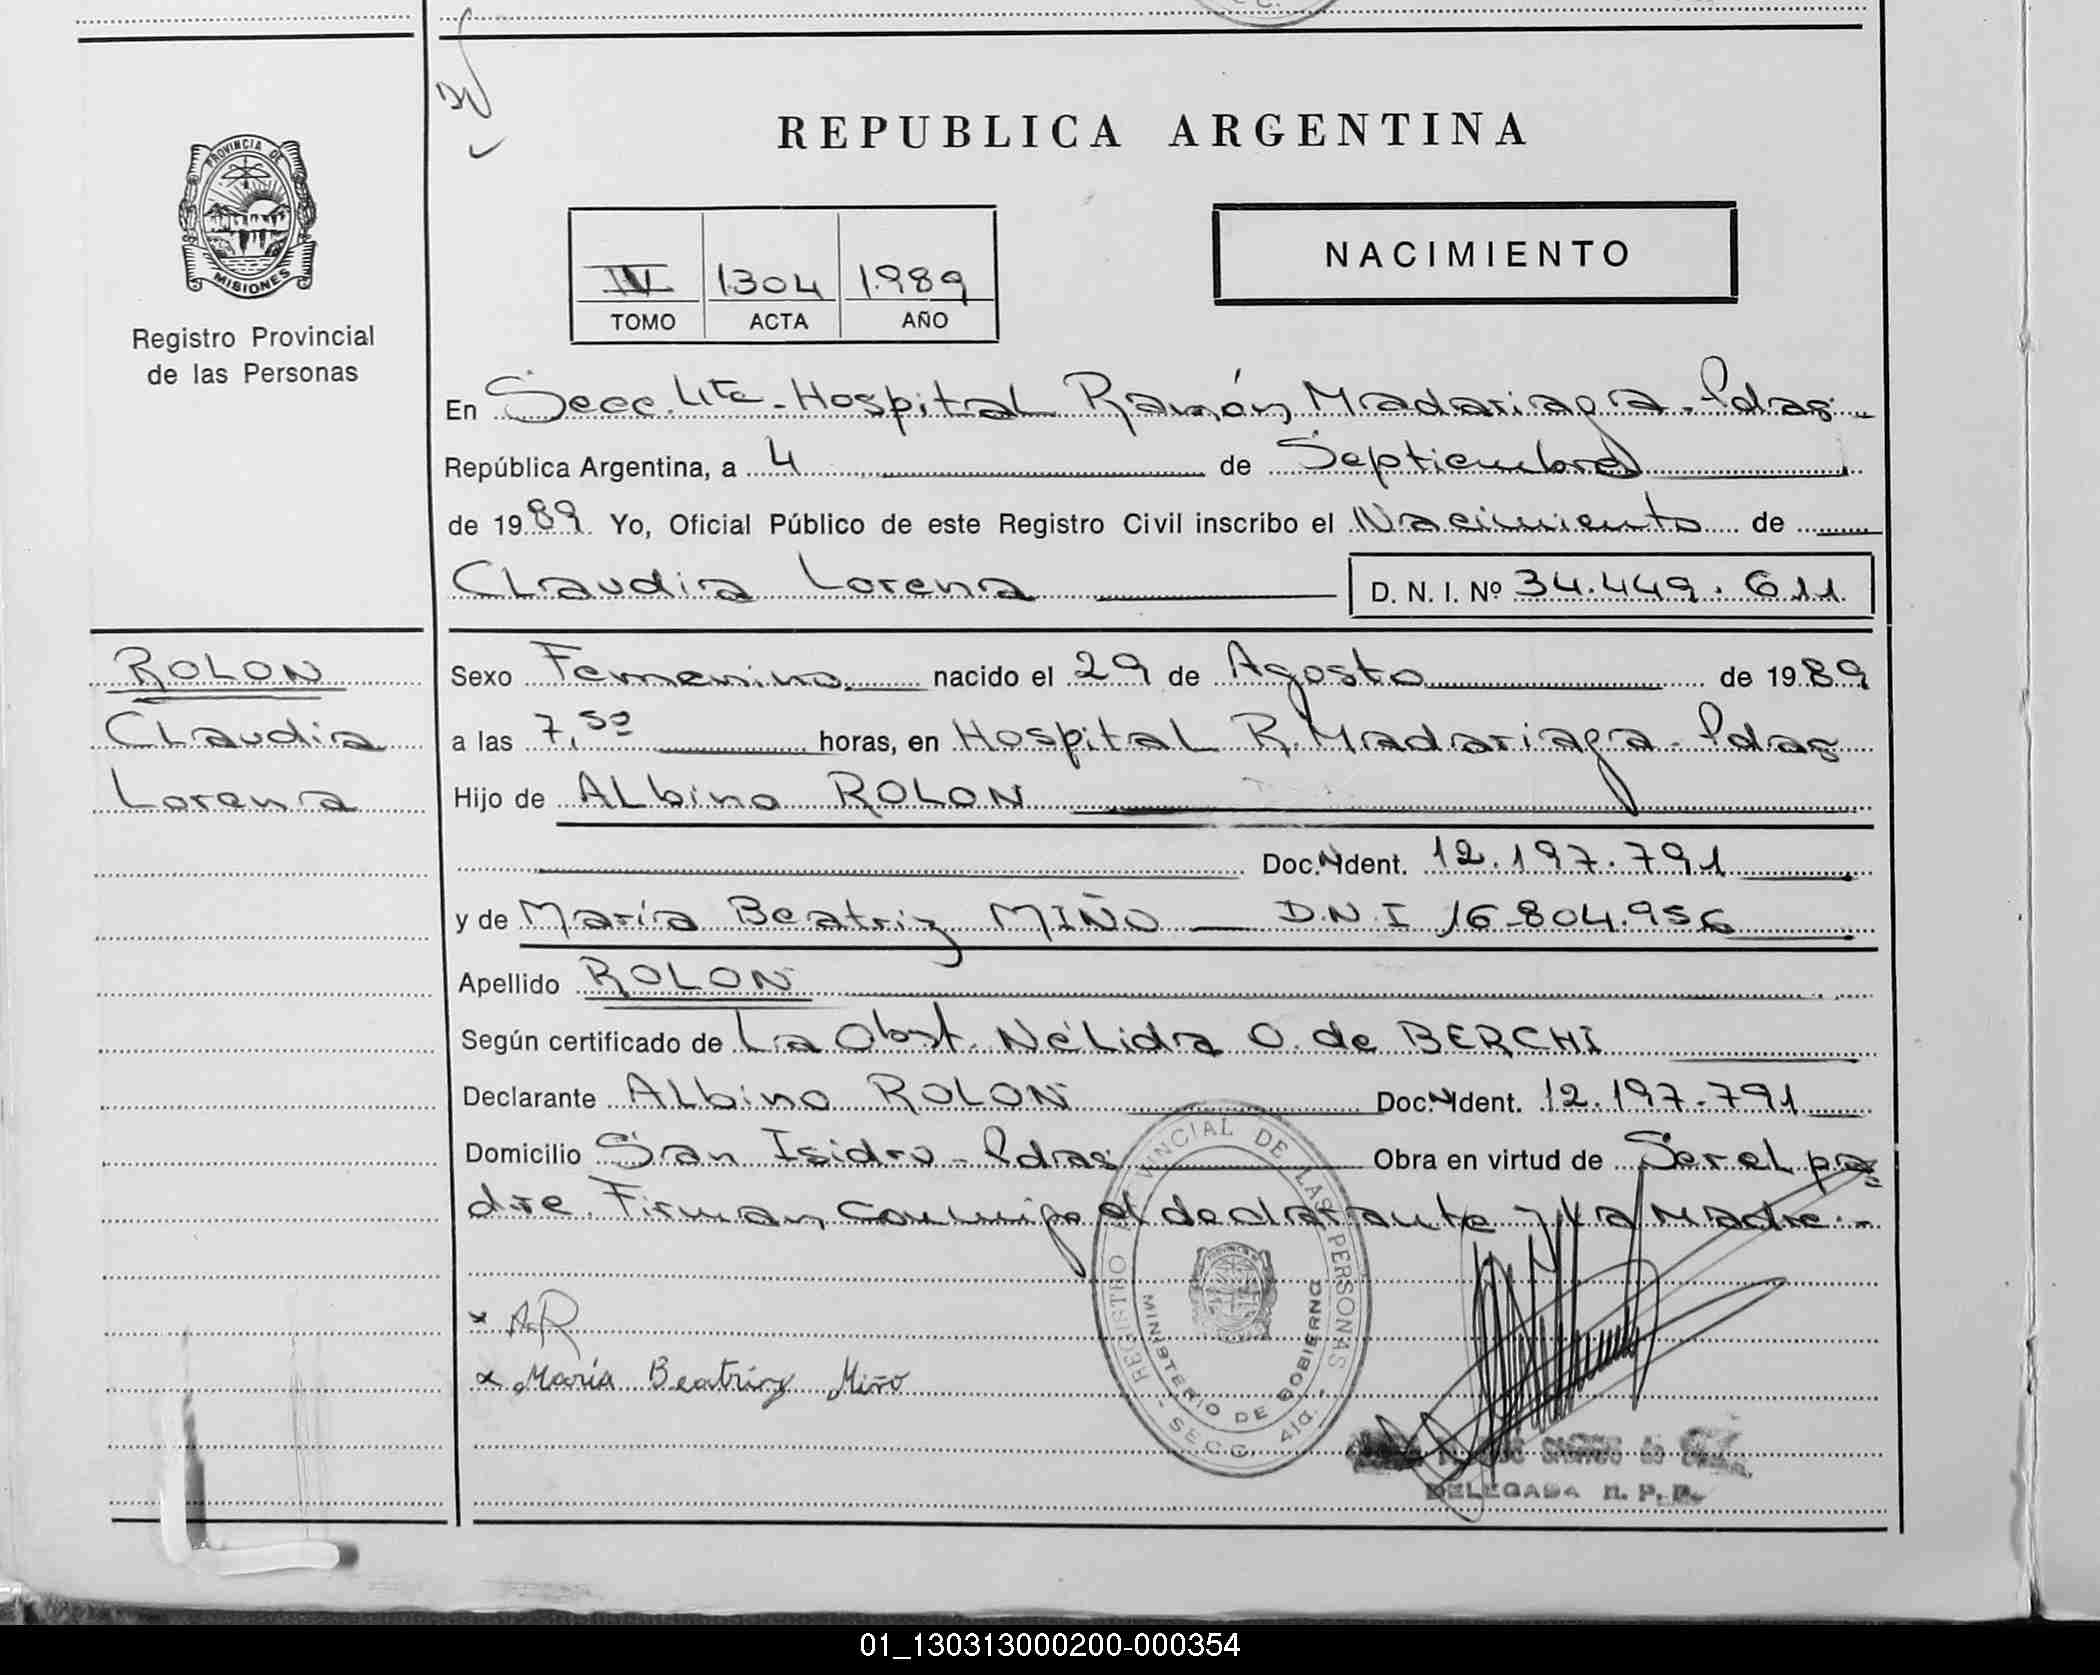 REPUBLICA ARGENTINA
PROVINCIA DE
MISIONES
Registro Provincial
de las Personas
NACIMIENTO
IV 1304 1989
TOMO ACTA AÑO
En Secc. 4ta - Hospital Ramón Madariaga - Pdas
República Argentina, a 4 de Septiembre
de 1989 Yo, Oficial Público de este Registro Civil inscribo el Nacimiento de
Claudia Lorena D. N. I. Nº 34.449.611
ROLON
Claudia
Lorena
Sexo Femenino nacido el 29 de Agosto de 1989
a las 7,50 horas, en Hospital R. Madariaga - Pdas
Hijo de Albino ROLON
Doc. Ident. 12.197.791
y de María Beatriz MIÑO — D.N.I 16.804.956
Apellido ROLON
Según certificado de La Obst. Nélida O. de BERCHI
Declarante Albino ROLON Doc. Ident. 12.197.791
Domicilio San Isidro - Pdas Obra en virtud de Ser el pa=
dre. Firman conmigo el declarante y la Madre.-
x AR
x María Beatriz Miño
REGISTRO PROVINCIAL DE LAS PERSONAS
MINISTERIO DE GOBIERNO
- SECC. 4ta. -
DELEGADA R. P. P.
01_130313000200-000354